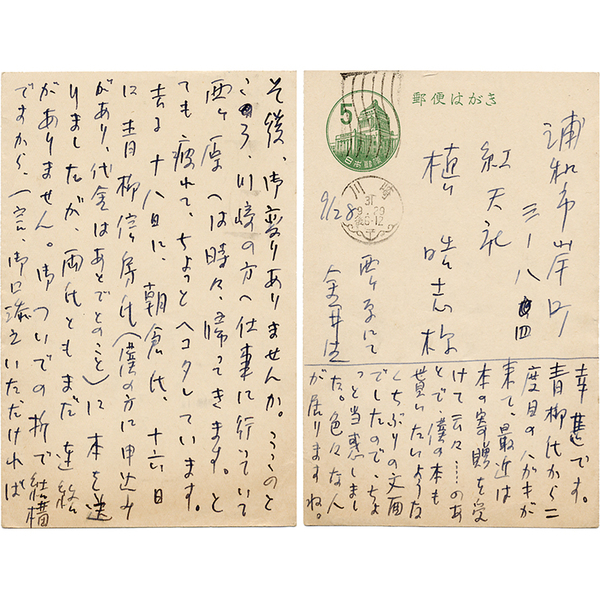 その後、御変りありませんか。こゝのと
ころ、川崎の方へ仕事に行っていて
西ヶ原へは時々、帰ってきます。と
ても疲れて、ちょっとヘコタレています。
去る十八日に、朝倉氏、十六日
に青柳信房氏(僕の方に申込み
があり、代金はあとでとのこと)に本を送
りましたが、両氏ともまだ連絡
がありません。御ついでの折で結構
ですから、一言、御口添えいただければ
郵便はがき
5
日本郵便
川崎
31
9.29
後6-12
9/28
浦和市岸町
三ー八ー四
紅天社
植 晧志様
西ヶ原にて
金井
幸甚です。
青柳氏から二
度目のハガキが
来て、最近は
本の寄贈を受
けて云々……のあ
とで、僕の本も
貰いたいような
くちぶりの文面
でしたので、ちょ
っと当惑しまし
た。色々な人
が居りますね。